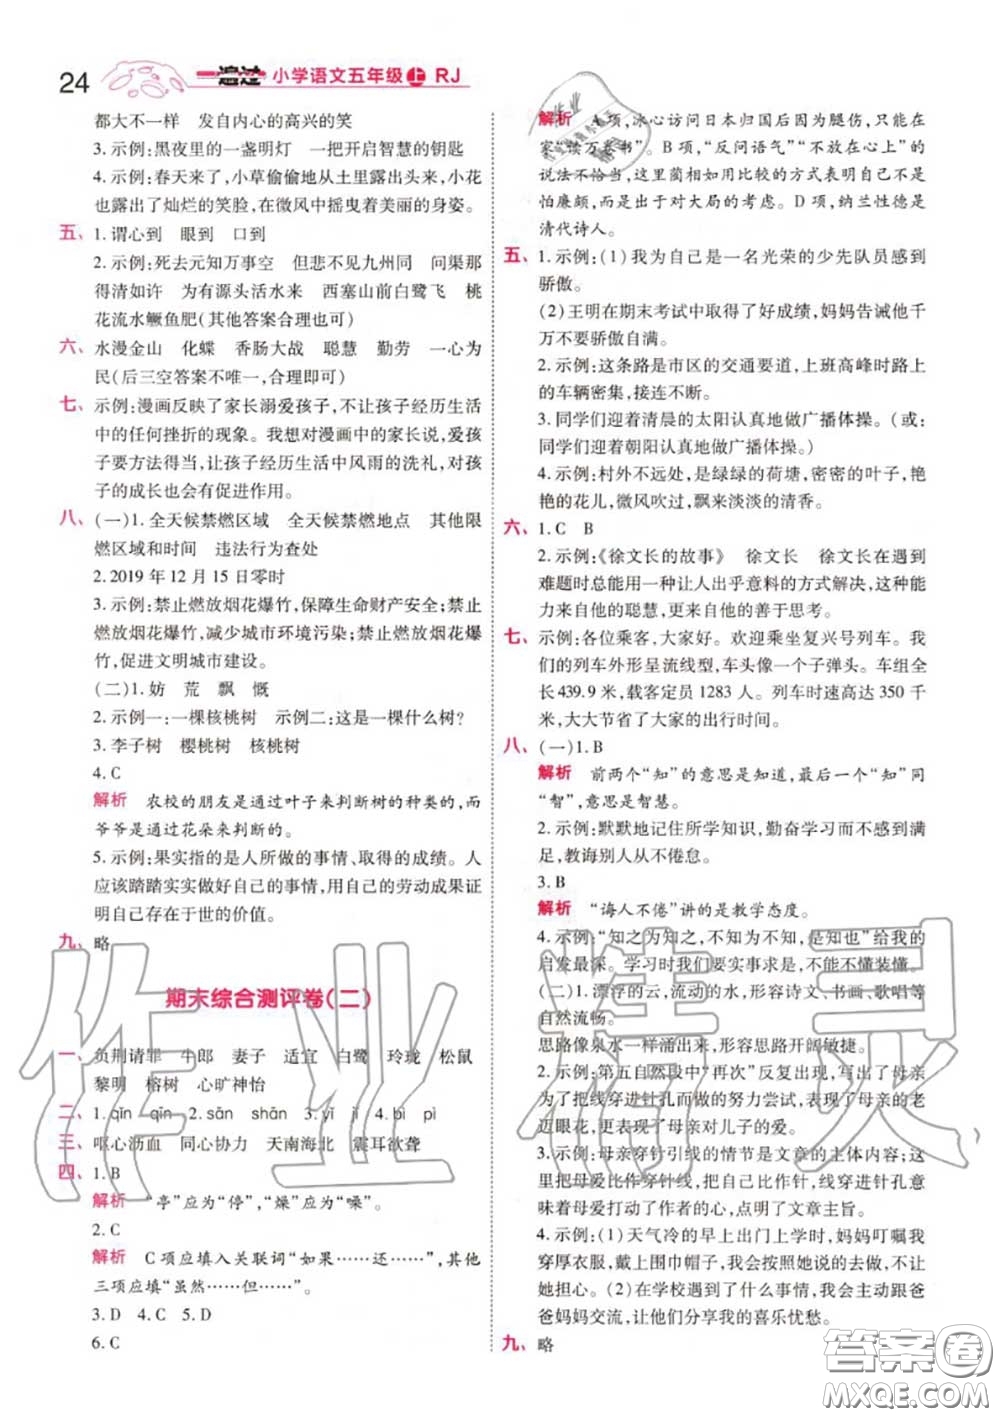 24
一遍过 小学语文五年级 上 RJ
都大不一样　发自内心的高兴的笑
3. 示例:黑夜里的一盏明灯　一把开启智慧的钥匙
4. 示例:春天来了,小草偷偷地从土里露出头来,小花
也露出了灿烂的笑脸,在微风中摇曳着美丽的身姿。
五、1. 谓心到　眼到　口到
2. 示例:死去元知万事空　但悲不见九州同　问渠那
得清如许　为有源头活水来　西塞山前白鹭飞　桃
花流水鳜鱼肥(其他答案合理也可)
六、水漫金山　化蝶　香肠大战　聪慧　勤劳　一心为
民(后三空答案不唯一,合理即可)
七、示例:漫画反映了家长溺爱孩子,不让孩子经历生活
中的任何挫折的现象。我想对漫画中的家长说,爱孩
子要方法得当,让孩子经历生活中风雨的洗礼,对孩
子的成长也会有促进作用。
八、(一)1. 全天候禁燃区域　全天候禁燃地点　其他限
燃区域和时间　违法行为查处
2. 2019 年 12 月 15 日零时
3. 示例:禁止燃放烟花爆竹,保障生命财产安全;禁止
燃放烟花爆竹,减少城市环境污染;禁止燃放烟花爆
竹,促进文明城市建设。
(二)1. 妨　荒　飘　慨
2. 示例一:一棵核桃树　示例二:这是一棵什么树?
3. 李子树　樱桃树　核桃树
4. C
解析　农校的朋友是通过叶子来判断树的种类的,而
爷爷是通过花朵来判断的。
5. 示例:果实指的是人所做的事情、取得的成绩。人
应该踏踏实实做好自己的事情,用自己的劳动成果证
明自己存在于世的价值。
九、略
期末综合测评卷(二)
一、负荆请罪　牛郎　妻子　适宜　白鹭　玲珑　松鼠
黎明　榕树　心旷神怡
二、1. qīn　qīn　2. sān　shān　3. yì　jì　4. bì　pì
三、呕心沥血　同心协力　天南海北　震耳欲聋
四、1. B
解析　“亭”应为“停”,“燥”应为“噪”。
2. C
解析　C 项应填入关联词“如果……还……”,其他
三项应填“虽然……但……”。
3. D　4. C　5. D
6. C
解析　A 项,冰心访问日本归国后因为腿伤,只能在
家“读万卷书”。B 项,“反问语气”“不放在心上”的
说法不恰当,这里蔺相如用比较的方式表明自己不是
怕廉颇,而是对大局的考虑。D 项,纳兰性德是
清代诗人。
五、1. 示例:(1)我为自己是一名光荣的少先队员感到
骄傲。
(2)王明在期末考试中取得了好成绩,妈妈告诫他千
万不要骄傲自满。
2. 示例:这条路是市区的交通要道,上班高峰时路上
的车辆密集,接连不断。
3. 同学们迎着清晨的太阳认真地做广播体操。(或:
同学们迎着朝阳认真地做广播体操。)
4. 示例:村外不远处,是绿绿的荷塘,密密的叶子,艳
艳的花儿,微风吹过,飘来淡淡的清香。
六、1. C　B
2. 示例:《徐文长的故事》　徐文长　徐文长在遇到
难题时总能用一种让人出乎意料的方式解决,这种能
力来自他的聪慧,更来自他的善于思考。
七、示例:各位乘客,大家好。欢迎乘坐复兴号列车。我
们的列车外形呈流线型,车头像一个子弹头。车组全
长 439.9 米,载客定员 1283 人。列车时速高达 350 千
米,大大节省了大家的出行时间。
八、(一)1. B
解析　前两个“知”的意思是知道,最后一个“知”同
“智”,意思是智慧。
2. 示例:默默地记住所学知识,勤奋学习而不感到满
足,教诲别人从不倦怠。
3. B
解析　“诲人不倦”讲的是教学态度。
4. 示例:“知之为知之,不知为不知,是知也”给我的
启发最深。学习时我们要实事求是,不能不懂装懂。
(二)1. 漂浮的云,流动的水,形容诗文、书画、歌唱等
自然流畅。
思路像泉水一样涌出来,形容思路开阔敏捷。
2. 示例:第五自然段中“再次”反复出现,写出了母亲
为了把线穿进针孔而做的努力尝试,表现了母亲的老
迈眼花,更表现了母亲对儿子的爱。
3. 示例:母亲穿针引线的情节是文章的主体内容;这
里把母爱比作穿针线,把自己比作针,线穿进针孔意味
着母爱打动了作者的心,点明了文章主旨。
4. 示例:(1)天气冷的早上出门上学时,妈妈叮嘱我
穿厚衣服,戴上围巾帽子,我会按照她说的去做,不让
她担心。(2)在学校遇到了什么事情,我会主动跟爸
爸妈妈交流,让他们分享我的喜乐忧愁。
九、略
作业精灵
答案圈
MXQE.COM